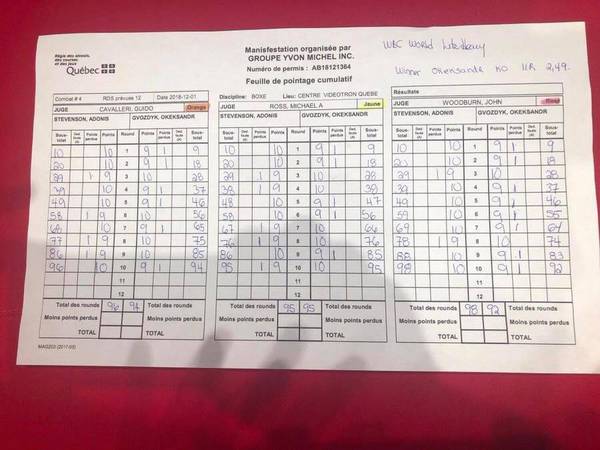 Régie des alcools,
des courses
et des jeux
Québec
Manisfestation organisée par
GROUPE YVON MICHEL INC.
Numéro de permis : AB18121364
Feuille de pointage cumulatif
WBC World
Winner Oleksandr KO 11R 2,49.
Combat # 4 RDS prévues 12 Date 2018-12-01
Discipline: BOXE Lieu: CENTRE VIDEOTRON QUEBE
Résultats
JUGE CAVALLERI, GUIDO Orange
STEVENSON, ADONIS GVOZDYK, OKEKSANDR
Sous-total Points perdus Points Round Points Points perdus Sous-total
10 10 1 9 1 9
20 10 2 9 1 18
29 1 9 3 10 28
39 10 4 9 1 37
49 10 5 9 1 46
58 1 9 6 10 56
68 10 7 9 1 65
77 1 9 8 10 75
86 1 9 9 10 85
96 10 10 9 1 94
11
12
Total des rounds 96 94
Moins points perdus
TOTAL
MAG203 (2017-03)
JUGE ROSS, MICHAEL A Jaune
STEVENSON, ADONIS GVOZDYK, OKEKSANDR
Sous-total Points perdus Points Round Points Points perdus Sous-total
10 10 1 9 1 9
20 10 2 9 1 18
29 1 9 3 10 28
38 1 9 4 10 38
48 10 5 9 1 47
58 10 6 9 1 56
67 1 9 7 10 66
76 1 9 8 10 76
86 10 9 9 1 85
95 1 9 10 10 95
11
12
Total des rounds 95 95
Moins points perdus
TOTAL
JUGE WOODBURN, JOHN
STEVENSON, ADONIS GVOZDYK, OKEKSANDR
Sous-total Points perdus Points Round Points Points perdus Sous-total
10 10 1 9 1 9
20 10 2 9 1 18
29 1 9 3 10 28
39 10 4 9 1 37
49 10 5 9 1 46
59 10 6 9 1 55
69 10 7 9 1 64
78 1 9 8 10 74
88 10 9 9 1 83
98 10 10 9 1 92
11
12
Total des rounds 98 92
Moins points perdus
TOTAL